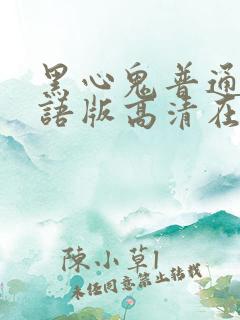 黑心鬼普通
語版高清在
陳小草l
未任同意禁止转载